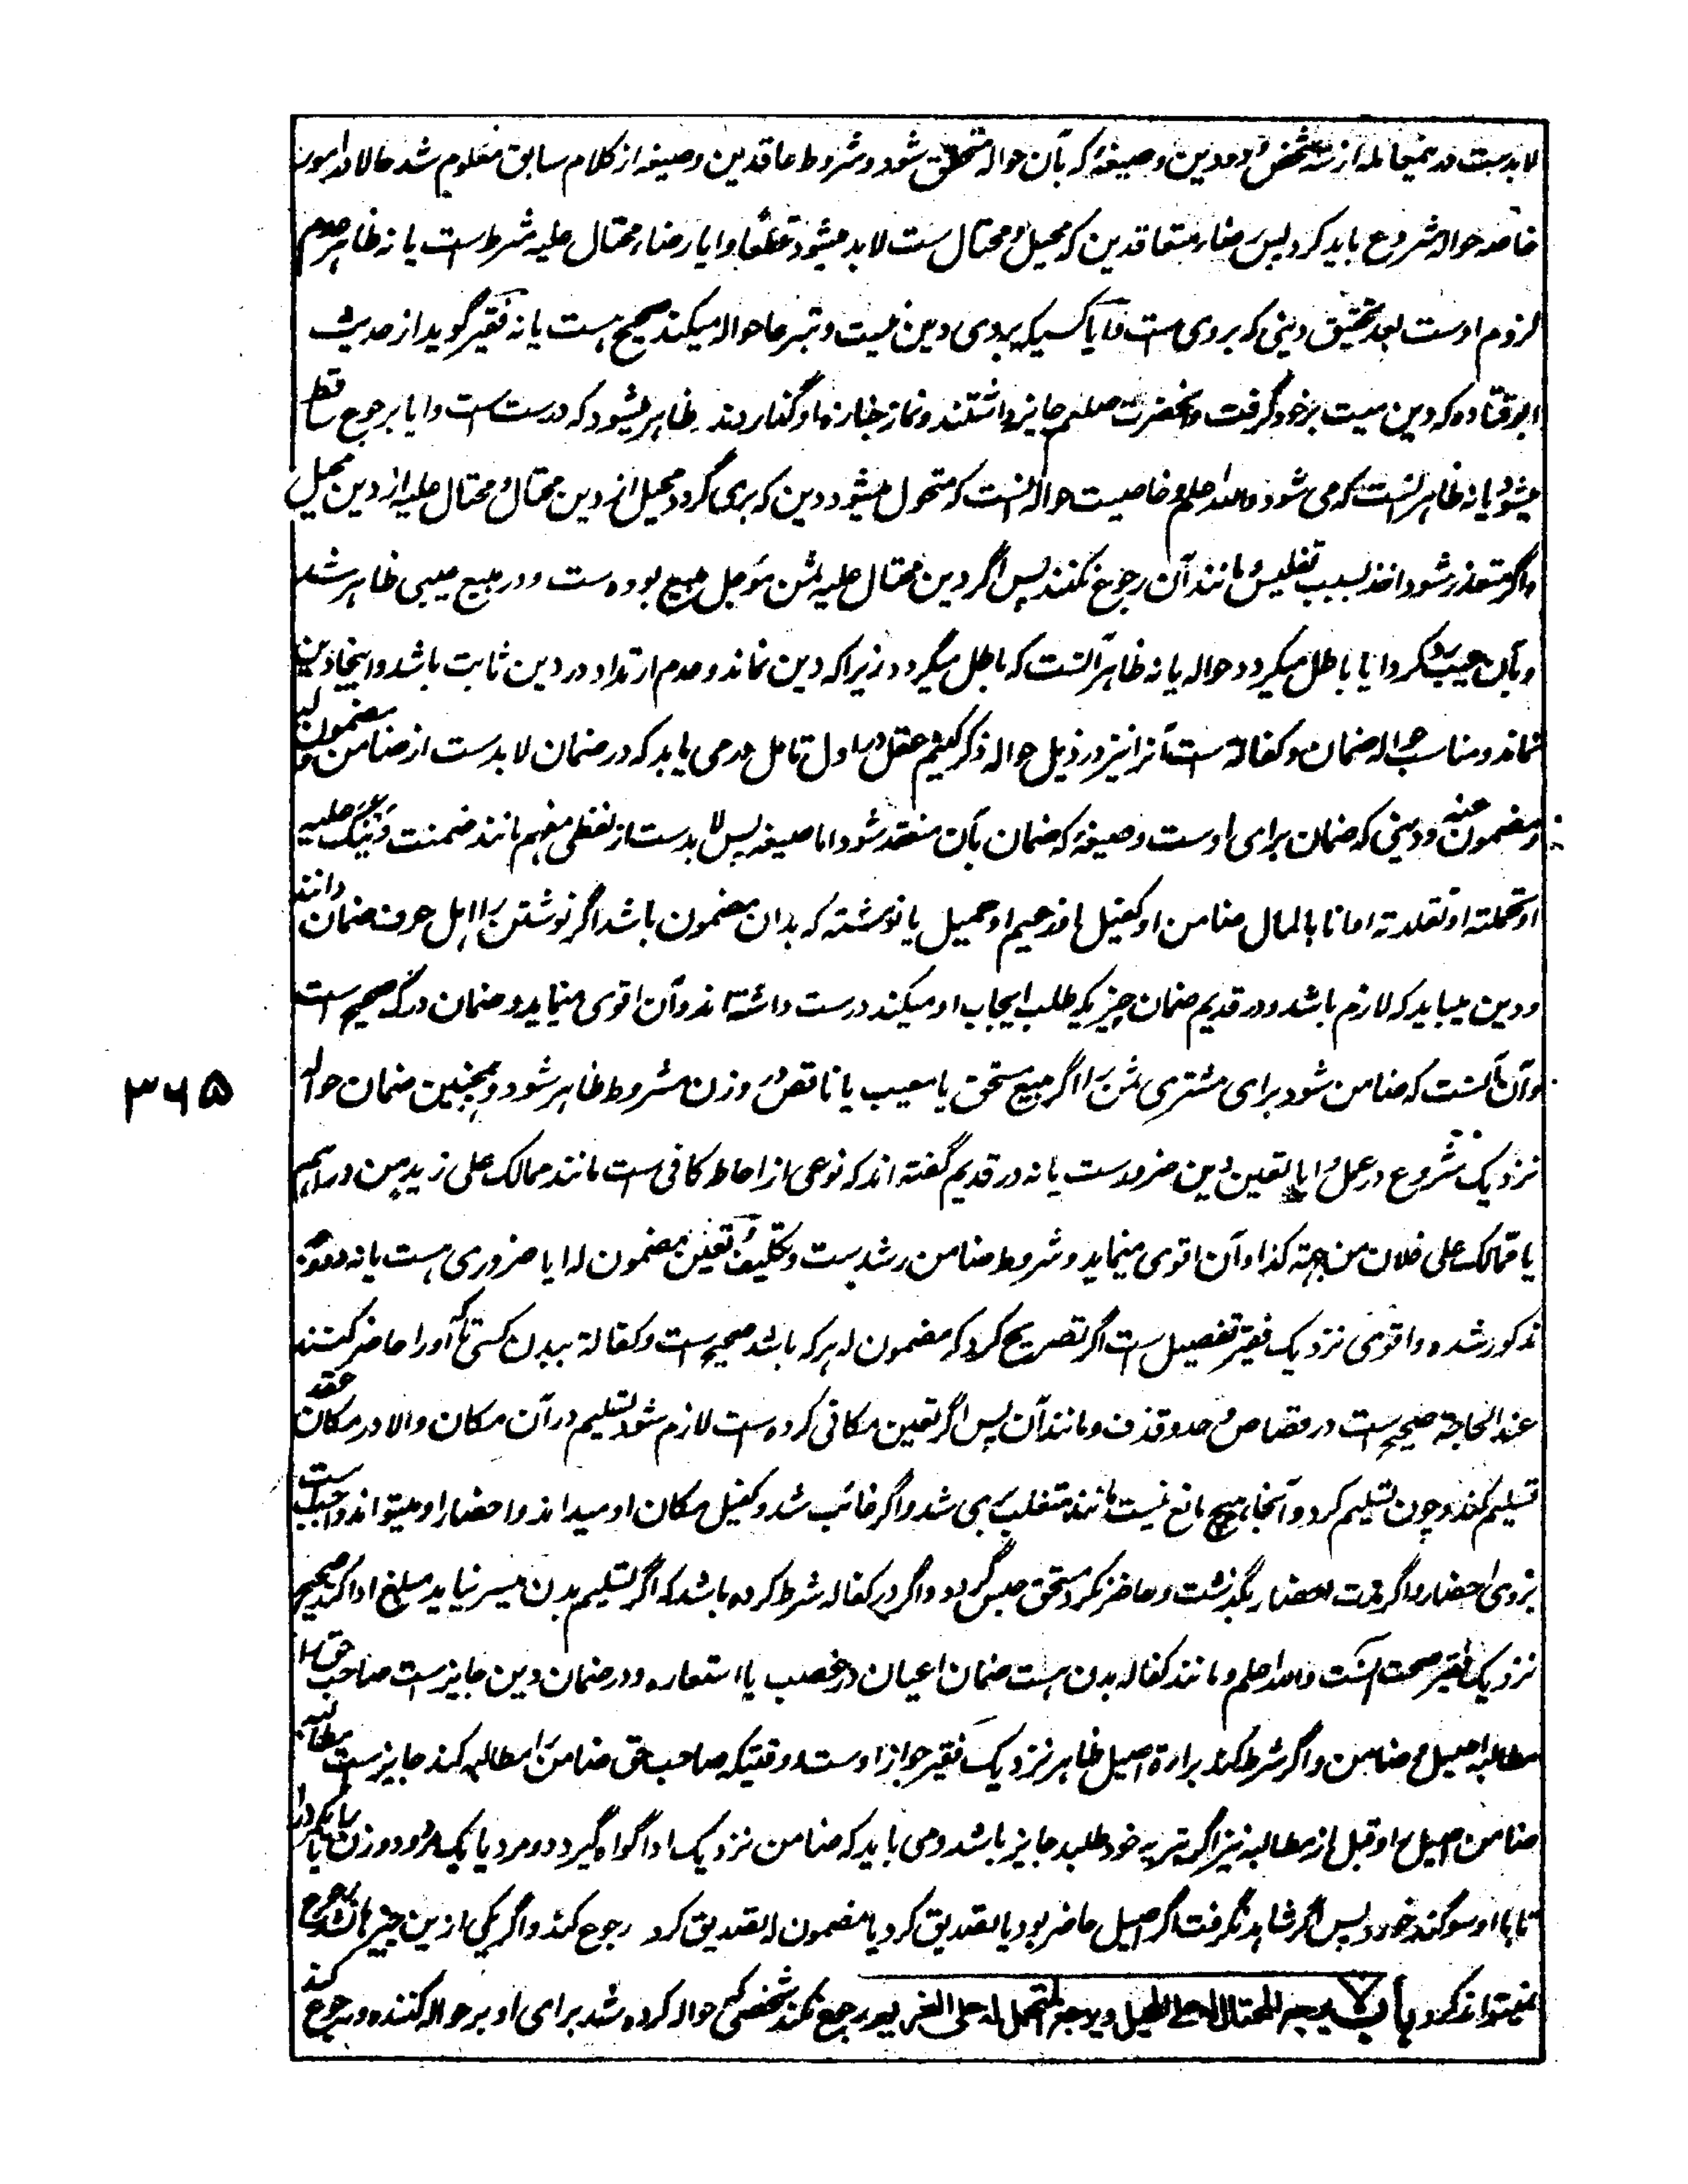 لابدست درینمعامله از سه شخص و دو دین و صیغهٔ که بآن حواله متحقق شود و شروط عاقدین و صیغه از کلام سابق معلوم شد حالا در امور
خاصه حواله شروع باید کرد پس رضاء متعاقدین که محیل و محتال ست لابد میشود قطعا و ایا رضاء محتال علیه شرط ست یا نه ظاهر عدم
لزوم اوست بعد تحقیق دینی که بروی ست و ایا کسیکه بروی دین نیست و تبرعا حواله میکند صحیح هست یا نه فقیر گوید از حدیث
ابو قتاده که دین میت بر خود گرفت و آنحضرت صلعم جایز داشتند و نماز جنازهٔ او گذاردند ظاهر میشود که درست ست و ایا برجوع ساقط
میشود یا نه ظاهر آنست که می شود والله اعلم و خاصیت حواله آنست که متحول میشود دین که بری گردد محیل از دین محتال و محتال علیه از دین محیل
و اگر متعذر شود اخذ بسبب تفلیس و مانند آن رجوع نکند پس اگر دین محتال علیه ثمن مؤجل مبیع بوده ست و در مبیع عیبی ظاهر شد
و بآن عیب رد کرد ایا باطل میگردد حواله یا نه ظاهر آنست که باطل میگردد زیرا که دین نماند و عدم ارتداد در دین ثابت باشد و اینجا دین
نماند و مناسب حواله ضمان و کفالة ست آنرا نیز در ذیل حواله ذکر کنیم عقل در اول تامل درمی یابد که در ضمان لابدست از ضامن و مضمون له
و مضمون عنه و دینی که ضمان برای اوست و صیغهٔ که ضمان بآن منعقد شود اما صیغه پس لابدست از لفظی مفهم مانند ضمنت دینک علیه
او تحملته او تقلدته او انا بالمال ضامن او کفیل او زعیم او حمیل یا نوشته که بدان مضمون باشد اگر نوشتن را اهل عرف ضمان دانند
و دین میباید که لازم باشد و در قدیم ضمان چیزیکه طلب ایجاب او میکند درست داشته اند و آن اقوی مینماید و ضمان درک صحیح ست
و آن آنست که ضامن شود برای مشتری ثمن را اگر مبیع مستحق یا معیب یا ناقص در وزن مشروط ظاهر شود و همچنین ضمان حواله
نزدیک شروع در عمل و ایا تعین دین ضرورست یا نه در قدیم گفته اند که نوعی از احاطه کافی ست مانند ممالک علی زید من دراهم
یا ممالک علی فلان من جهة کذا و آن اقوی مینماید و شروط ضامن رشد ست و تکلیف و تعین مضمون له ایا ضروری هست یا نه
مذکور شده و اقوی نزدیک فقیر تفصیل ست اگر تصریح کرد که مضمون له هر که باشد صحیح ست و کفالة ببدن کسی تا که آورا حاضر کنند
عند الحاجة صحیح ست در قصاص و حد و قذف و مانند آن پس اگر تعین مکانی کرده ست لازم شود تسلیم در آن مکان والا در مکان عقد
تسلیم کند و چون تسلیم کرد و آنجا هیچ مانع نیست مانند متغلب بری شد و اگر غائب شد و کفیل مکان او میداند و احضار او میتواند واجب ست
بروی احضار و اگر مدت احضار بگذشت و حاضر نکرد مستحق حبس گردد و اگر در کفاله شرط کرده باشد که اگر تسلیم بدن میسر نیاید مبلغ ادا کند صحیح
نزدیک فقیر صحت آنست والله اعلم و مانند کفاله بدن ست ضمان اعیان در غصب یا استعاره و در ضمان دین جایزست صاحب حق را
مطالبهٔ اصیل و ضامن و اگر شرط کند براءة اصیل ظاهر نزدیک فقیر جواز اوست و وقتیکه صاحب حق ضامن را مطالبه کند جایزست مطالبه
ضامن اصیل را و قبل از مطالبه نیز اگر تبریه خود طلبد جایز باشد و می باید که ضامن نزدیک ادا گواه گیرد دو مرد یا یک مرد و دو زن یا یک مرد را
تا با او سوگند خورد پس اگر شاهد نگرفت اگر اصیل حاضر بود یا تصدیق کرد یا مضمون له تصدیق کرد رجوع کند و اگر یکی ازین چیزها نشد رجوع
نمیتواند کرد باب لا یرجع المحتال له علی المحیل و یرجع المتحمل له علی الغریم رجوع نکند شخصی که حواله کرده شد برای او بر حواله کننده و رجوع کند
۳۶۵